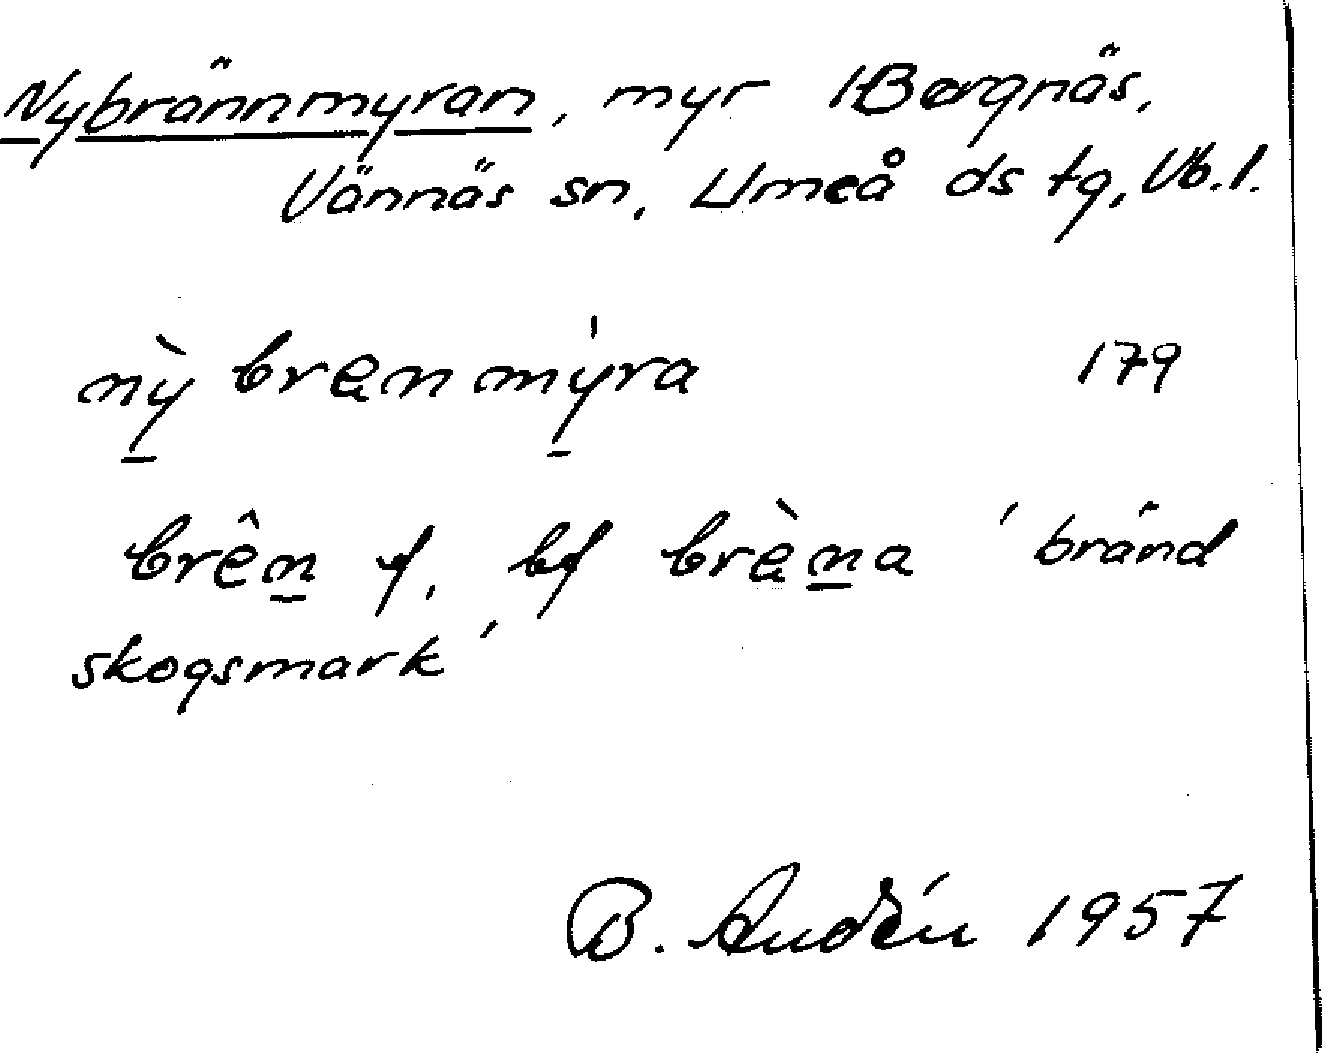 Nybrännmyran, myr i Bergnäs,
Vännäs sn, Umeå ds tg, Vb.l.
nỳ̱ bręnmý̱ra 179
brên̠ f, bf brę̀n̠a ' bränd
skogsmark'
B. Audén 1957